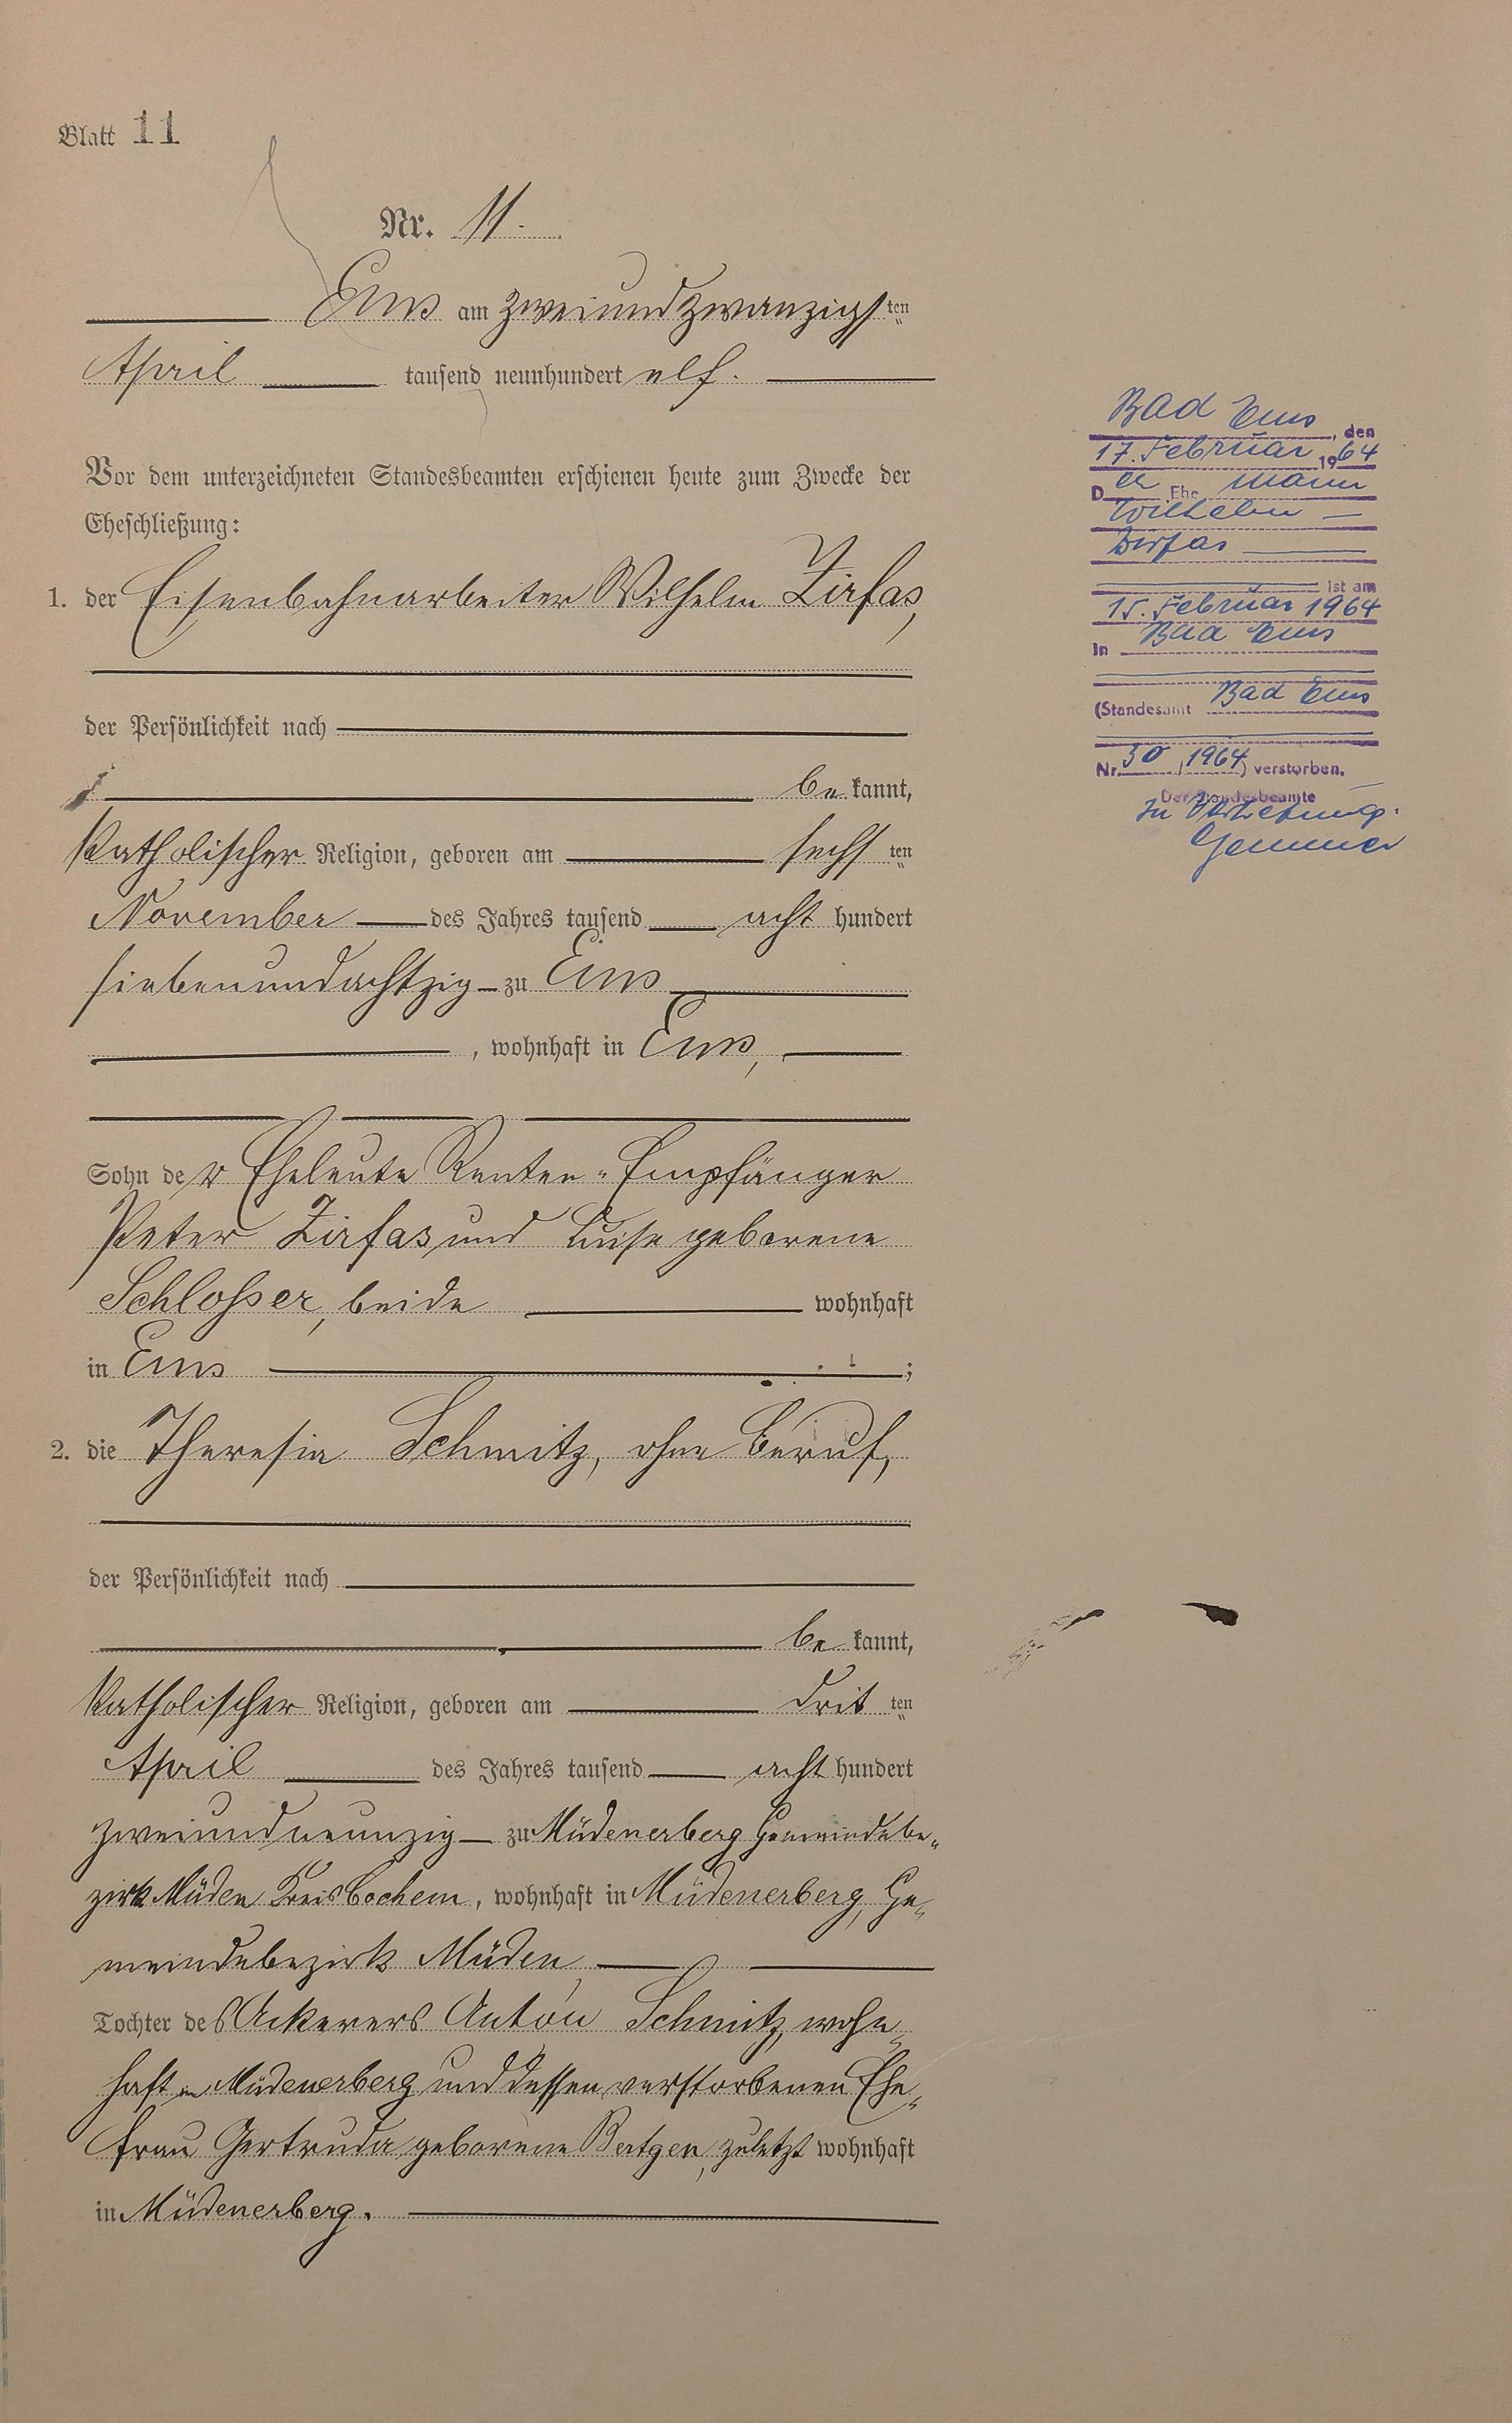 Blatt 11
Nr. 11.
Ems am zweiundzwanzigsten
April tausend neunhundert elf.
Vor dem unterzeichneten Standesbeamten erschienen heute zum Zwecke der
Eheschließung:
1. der Eisenbahnarbeiter Wilhelm Zirfas,
der Persönlichkeit nach
bekannt,
katholischer Religion, geboren am sechsten
November des Jahres tausend acht hundert
siebenundachtzig zu Ems
, wohnhaft in Ems,
Sohn der Eheleute Renten-Empfänger
Peter Zirfas und Luise geborene
Schlosser, beide wohnhaft
in Ems ;
2. die Theresia Schmitz, ohne Beruf,
der Persönlichkeit nach
bekannt,
katholischer Religion, geboren am dritten
April des Jahres tausend acht hundert
zweiundneunzig zu Müdenerberg Gemeindebe-
zirk Müden Kreis Cochem, wohnhaft in Müdenerberg, Ge-
meindebezirk Müden,
Tochter des Ackerers Anton Schmitz, wohn-
haft in Müdenerberg und dessen verstorbenen Ehe-
frau Gertruda geborene Bertgen, zuletzt wohnhaft
in Müdenerberg.
Bad Ems, den
17. Februar 1964
Der Ehemann
Wilhelm
Zirfas
ist am
15. Februar 1964
in Bad Ems
(Standesamt Bad Ems
Nr. 30/1964) verstorben.
Der Standesbeamte
In Vertretung.
Gemmer